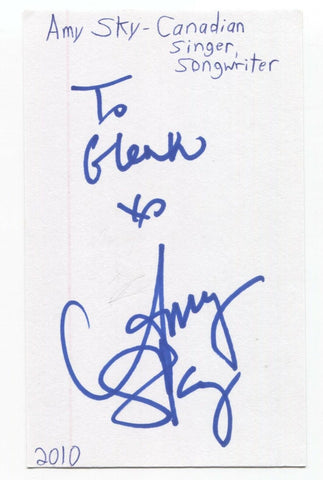 Amy Sky - Canadian
Singer,
Songwriter
To
Glenn
xo
Amy
Sky
2010